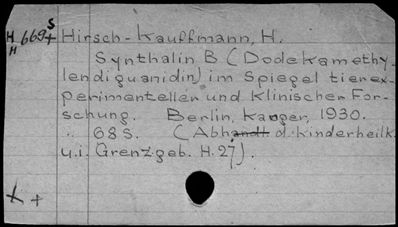 H 669+ S Hirsch-Kauffmann, H.
H
Synthalin B (Dodekamethy-
lendiguanidin) im Spiegel tierex-
perimenteller und klinischer For-
schung. Berlin, Karger, 1930.
" 68 S. (Abhandl d. Kinderheilk.
u.i. Grenzgeb. H. 27).
+